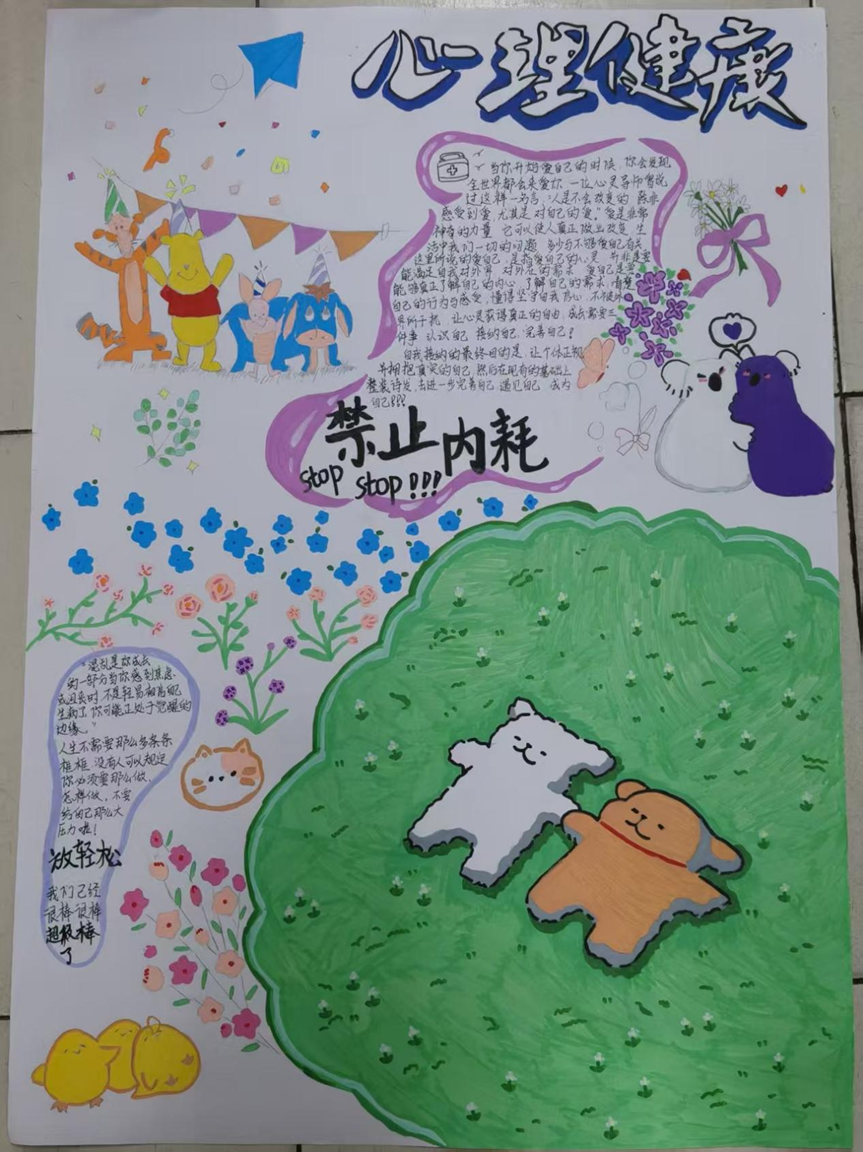 心理健康
当你开始爱自己的时候，你会发现
全世界都会来爱你 一位心灵导师曾说
过这样一句名言，“人是不会改变的 除非
感受到爱 尤其是对自己的爱。”爱是非常
神奇的力量 它可以使人真正做出改变 生
活中我们一切的问题 多少与不够爱自己有关
这里所说的爱自己，是指爱自己的心灵 并非是要
能满足自我对外界 对外在的需求 爱自己是要
能够真正了解自己的内心 了解自己的需求 清楚
自己的行为与感受，懂得坚守自我为心，不被外
界所干扰 让心灵获得真正的自由 成长需要三
件事 认识自己 接纳自己 完善自己！
自我接纳的最终目的是 让个体正视
并拥抱真实的自己 然后在现有的基础上
整装待发 去进一步完善自己 遇见自己 成为
自己！！！
禁止内耗
stop stop!!!
“混乱是你成长
的一部分当你感到焦虑
或沮丧时 不是轻易相信自己
生病了 你可能正处于觉醒的
边缘。”
人生不需要那么多条条
框框 没有人可以规定
你必须要那么做
怎样做，不要
给自己那么大
压力啦！
放轻松
我们已经
很棒很棒
超级棒
了